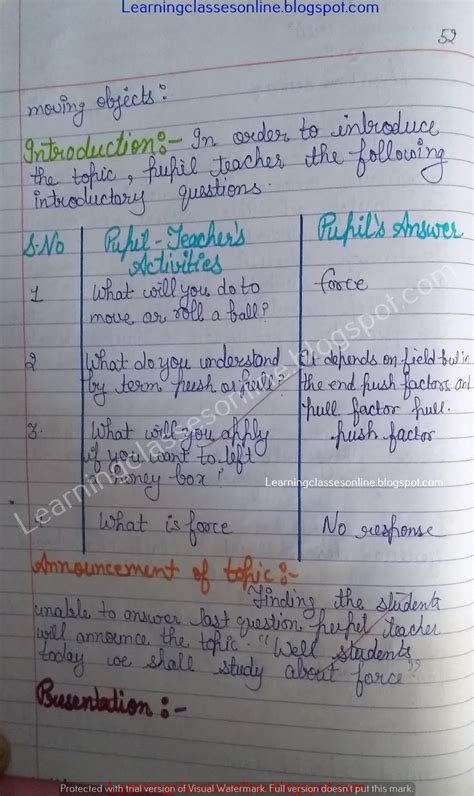 Learningclassesonline.blogspot.com
52
moving objects:
Introduction:- In order to introduce
the topic, pupil teacher the following
introductory questions.
S.No Pupil-Teacher's Activities Pupil's Answer
1 What will you do to force
move or roll a ball?
2 What do you understand It depends on field but in
by term push or pull? the end push factors and
pull factor pull.
3. What will you apply push factor
if you want to left
a money box?
What is force No response
Learningclassesonline.blogspot.com
Learningclassesonline.blogspot.com
Announcement of topic:-
Finding the students
unable to answer last question pupil teacher
will announce the topic. "Well students
today we shall study about force"
Presentation:-
Protected with trial version of Visual Watermark. Full version doesn't put this mark.